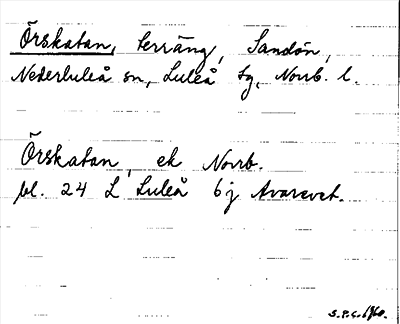 Örskatan, terräng, Sandön,
Nederluleå sn, Luleå tg, Norrb. l.
Örskatan, ek Norrb.
bl. 24 L Luleå 6j
S.P.G. 1960.